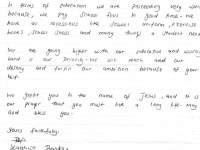 In terms of education we are proceeding very well
because, we pay school fees in good time. We
have all necessities like school uniform, exercise
books, school shoes and many things a student need
We are going higher with our education and working
hard is our priority. We will reach and our
destiny and fulfill our ambition because of your
We greet you in the name of Jesus, and it is
our prayer that you must live a long life. May
God bless you.
Yours faithfully,